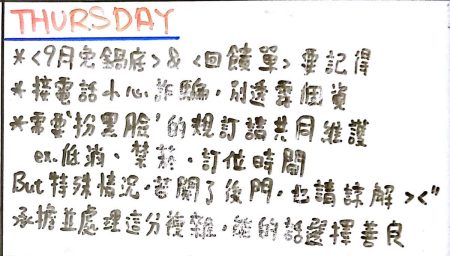 THURSDAY
*<9月免鍋底>&<回饋單>要記得
*接電話小心詐騙，別透露個資
*需要'扮黑臉'的規訂請共同維護
ex.低消、禁菸、訂位時間
But特殊情況，若開了後門，也請諒解><"
承擔並處理這分複雜，能的話選擇善良